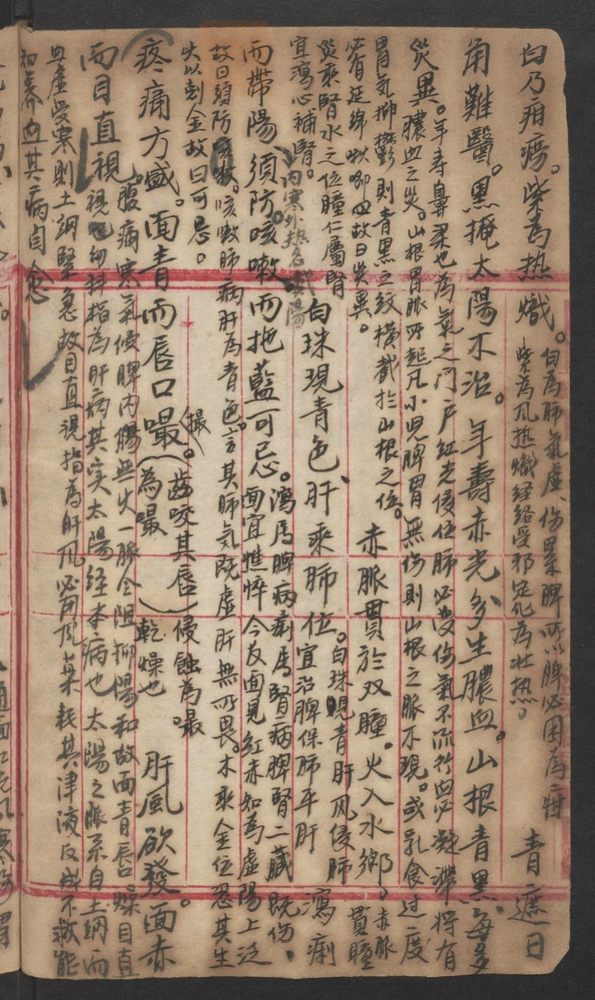 白乃疳瘍。柴為热熾。白為肺氣虛、傷累脾所以脾必困為疳 柴為风热熾経絡受邪定化為壮热。青遮日
角難醫。黑掩太陽不治。年壽赤光多生膿血。山根青黑。每多
災異。年寿鼻梁也為氣之门户红光侵位肺必受傷氣不流於血必凝滯将有
膿血之災。山根胃脈所起凡小児脾胃無伤則山根之脈不現。或乳食过度
胃氣抑鬱則青黑之紋横截於山根之位。赤脈貫於双瞳。火入水鄉。赤脈貫瞳
必有延绵唧唧也故曰災異。
災乘腎水之位瞳仁屬腎
宜瀉心補腎。白珠現青色、肝乘肺位。白珠現青肝风侵肺 宜治脾保肺平肝 瀉痢
而帶陽、須防。咳嗽而拖藍可忌。瀉属脾病痢属腎病脾腎二藏既伤。
内寒外热名戴陽
面宜憔悴今反面見红赤知為虚陽上泛
故曰須防咳嗽。咳嗽肺病肝為青色。言其肺气既虚肝無所畏。木乘金位忍其生
火以剋金故曰可忌。
疼痛方盛。面青而唇口嘬（撮。齒咬其唇 為嘬）侵蝕為嘬。乾燥也 肝風欲發。面赤
而目直視。腹痛寒氣侵脾内陽無火一脈令阻抑陽和故面青唇燥目直
視視幼科指為肝病其实太陽经本病也 太陽之脈系自上綱而
血虚受寒則上綱緊急故目直視指為肝风必用风薬耗其津液反成不救能
知养血其病自愈